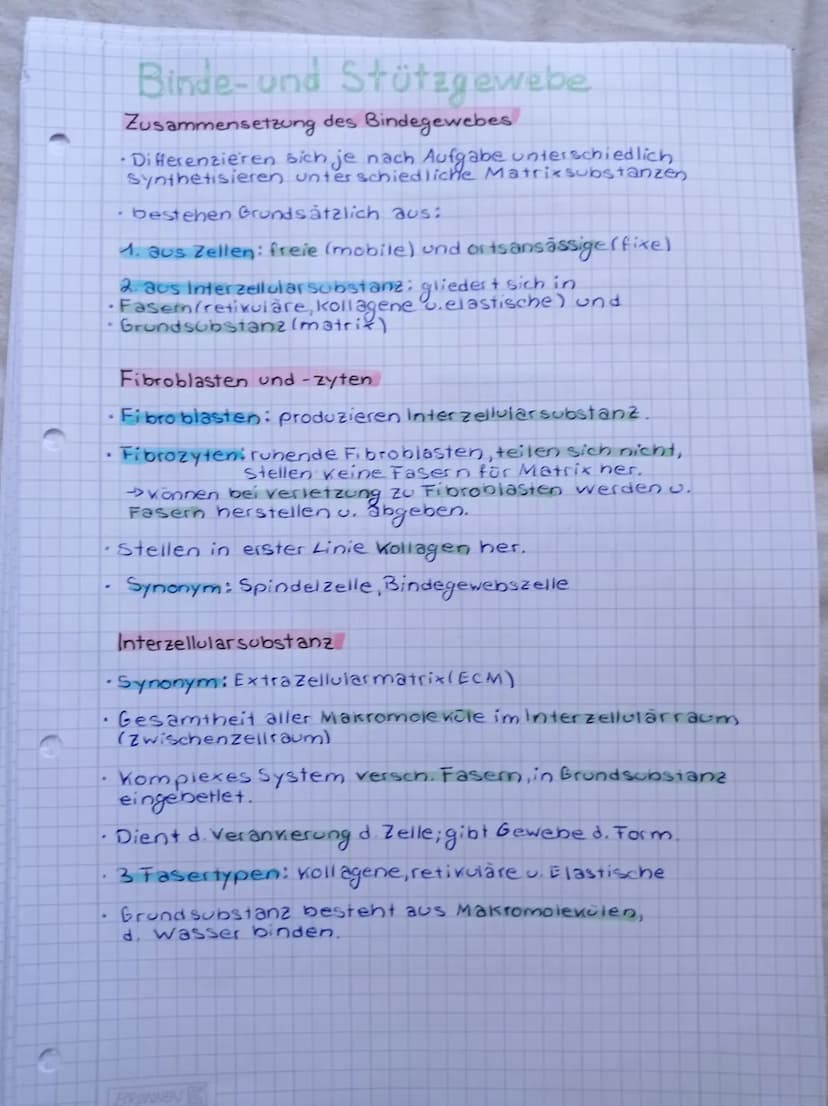 Binde- und Stützgewebe
Zusammensetzung des Bindegewebes
· Differenzieren sich je nach Aufgabe unterschiedlich
synthetisieren unterschiedliche Matrixsubstanzen
· bestehen Grundsätzlich aus:
1. aus Zellen: freie (mobile) und ortsansässige (fixe)
2. aus Interzellularsubstanz: gliedert sich in
· Fasern (retikuläre, kollagene u. elastische) und
· Grundsubstanz (matrix)
Fibroblasten und -zyten
· Fibroblasten: produzieren Interzellularsubstanz.
· Fibrozyten: ruhende Fibroblasten, teilen sich nicht,
stellen keine Fasern für Matrix her.
→ können bei verletzung zu Fibroblasten werden u.
Fasern herstellen u. abgeben.
· Stellen in erster Linie Kollagen her.
· Synonym: Spindelzelle, Bindegewebszelle
Interzellularsubstanz
· Synonym: Extrazellularmatrix (ECM)
· Gesamtheit aller Makromoleküle im Interzellulärraum
(Zwischenzellraum)
· Komplexes System versch. Fasern, in Grundsubstanz
eingebettet.
· Dient d. Verankerung d. Zelle; gibt Gewebe d. Form.
· 3 Fasertypen: Kollagene, retikuläre u. Elastische
· Grundsubstanz besteht aus Makromolekülen,
d. Wasser binden.
BRUNNEN